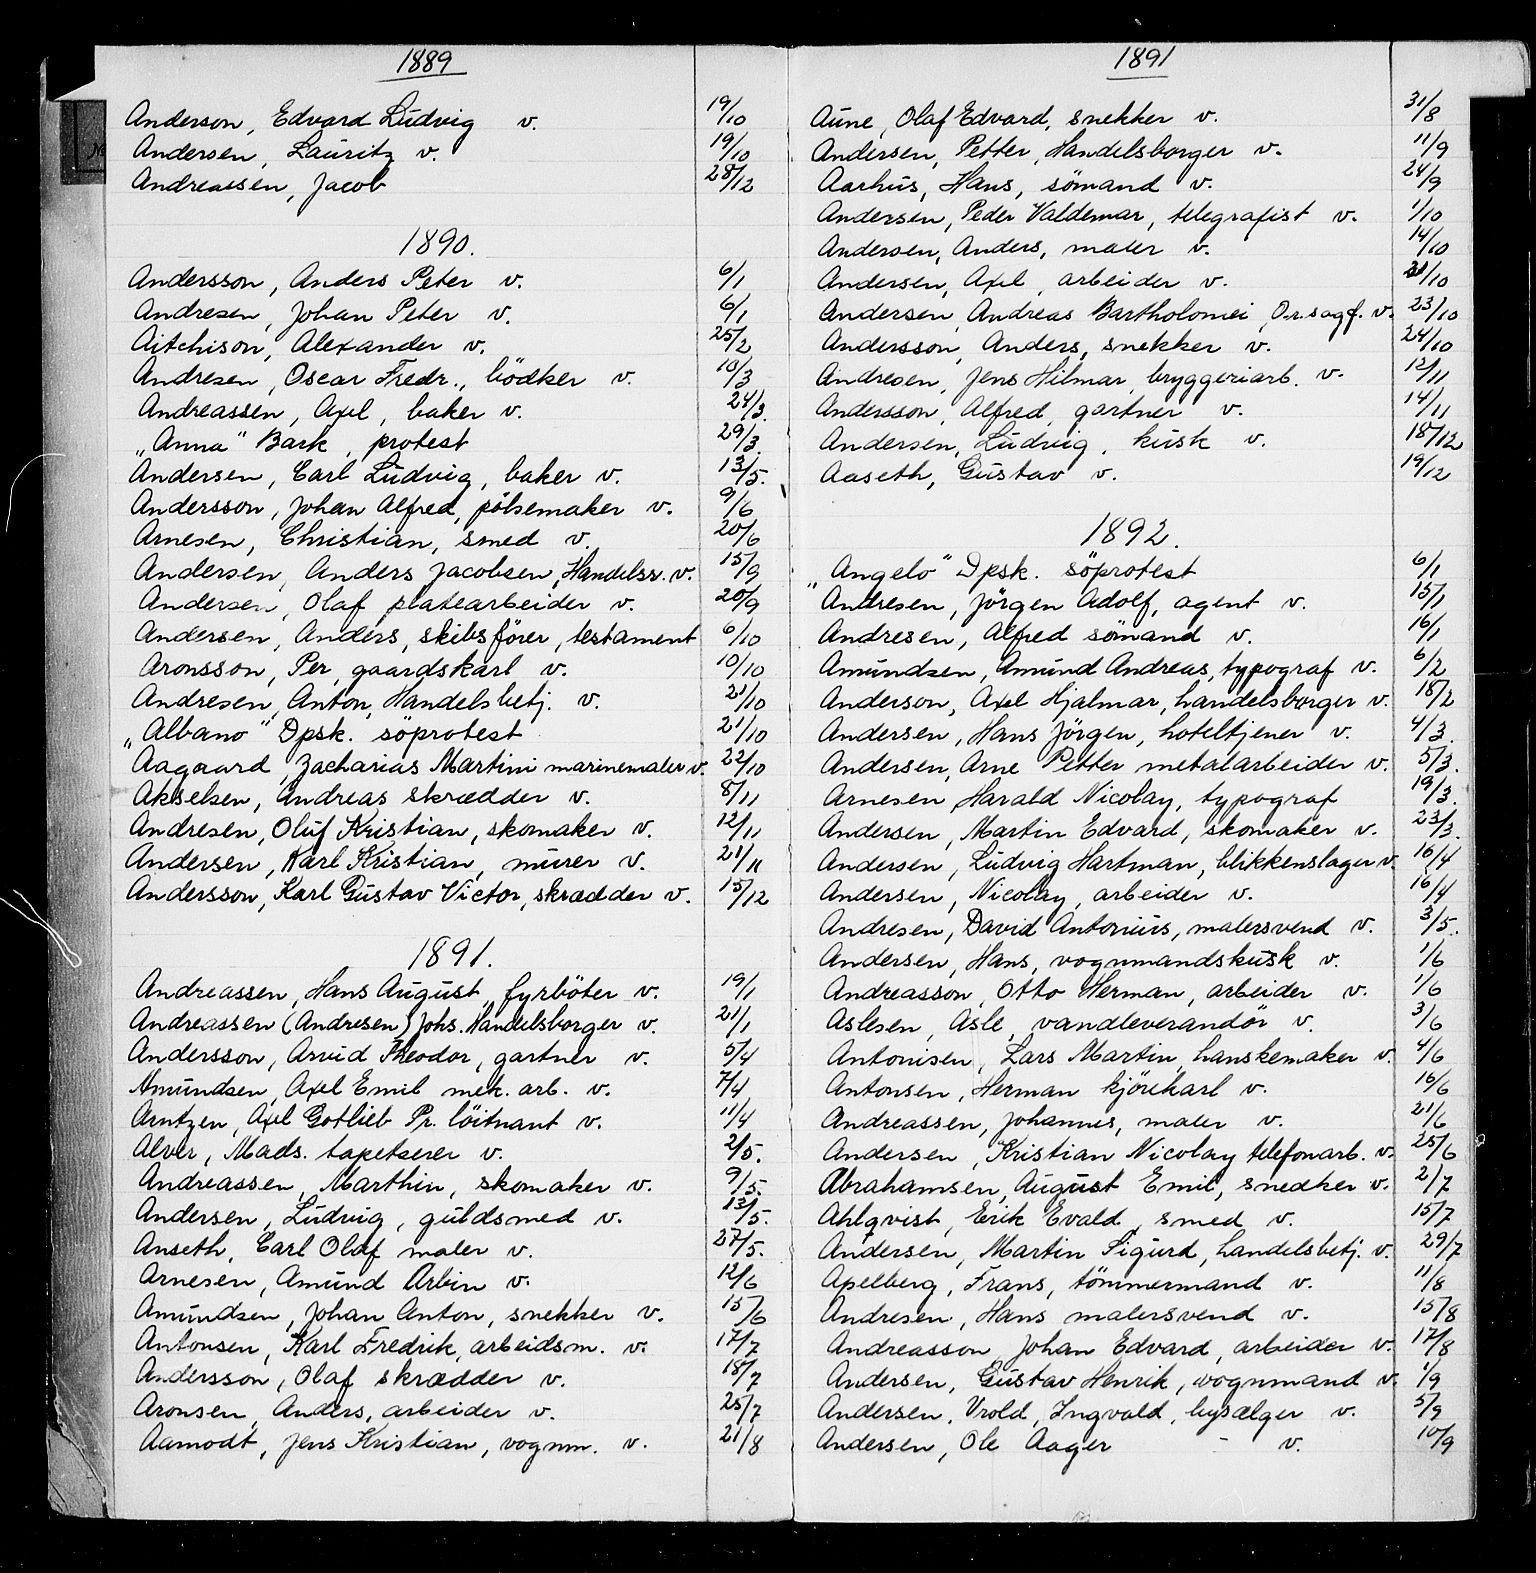 1889
Anderson, Edvard Ludvig v. 19/10
Andersen, Lauritz v. 19/10
Andreassen, Jacob 28/12
1890.
Andersson, Anders Peter v. 6/1
Andresen, Johan Peter v. 6/1
Aitchison, Alexander v. 25/2
Andresen, Oscar Fredr., bödker v. 10/3
Andreassen, Axel, baker v. 24/3.
"Anna" Bark, protest 29/3.
Andersen, Carl Ludvig, baker v. 13/5.
Andersson, Johan Alfred, pölsemaker v. 9/6
Arnesen, Christian, smed v. 20/6
Andersen, Anders Jacobsen, Handelsr. v. 15/9
Andersen, Olaf platearbeider v. 20/9
Andersen, Anders, skibsförer, testament 6/10
Aronsson, Per, gaardskarl v. 10/10
Andresen, Anton, Handelsbetj. v. 21/10
"Albano" Dpsk. söprotest 21/10
Aagaard, Zacharias Martini marinemaler v. 22/10
Akselsen, Andreas skrædder v. 8/11
Andresen, Oluf Kristian, skomaker v. 12/11
Andersen, Karl Kristian, murer v. 21/11
Andersson, Karl Gustav Victor, skrædder v. 15/12
1891.
Andreassen, Hans August, fyrböter v. 19/1
Andreassen (Andresen) Johs. Handelsborger v. 21/1
Andersson, Arvid Theodor, gartner v. 5/4
Amundsen, Axel Emil mek. arb. v. 7/4
Arntzen, Axel Gotlieb Pr. löitnant v. 11/4
Alver, Mads. tapetserer v. 2/5.
Andreassen, Marthin, skomaker v. 9/5.
Andersen, Ludvig, guldsmed v. 13/5.
Anseth, Carl Olaf maler v. 27/5.
Arnesen, Amund Arbin v. 12/6
Amundsen, Johan Anton, snekker v. 15/6
Antonsen, Karl Fredrik, arbeidsm. v. 17/7
Andersson, Olaf skrædder v. 18/7
Aronsen, Anders, arbeider v. 25/7
Aamodt, Jens Kristian, vognm. v. 21/8
1891
Aune, Olaf Edvard, snekker v. 31/8
Andersen, Petter, Handelsborger v. 11/9
Aarhus, Hans, sömand v. 24/9
Andersen, Peder Valdemar, telegrafist v. 1/10
Andersen, Anders, maler v. 14/10
Andersen, Axel, arbeider v. /10
Andersen, Andreas Bartholomei, O.r.sagf. v. 23/10
Andersson, Anders, snekker v. 24/10
Andresen, Jens Hilmar, bryggeriarb. v. 12/11
Andersson, Alfred, gartner v. 14/11
Andersen, Ludvig, kusk v. 18/12
Aaseth, Gustav v. 19/12
1892.
"Angelo" Dpsk. söprotest 6/1
Andresen, Jörgen Adolf, agent v. 15/1
Andresen, Alfred sömand v. 16/1
Amundsen, Amund Andreas, typograf v. 6/2
Anderson, Axel Hjalmar, handelsborger v. 18/2
Andersen, Hans Jörgen, hoteltjener v. 4/3.
Andersen, Arne Petter metalarbeider v. 5/3.
Arnesen, Harald Nicolay, typograf 19/3.
Andersen, Martin Edvard, skomaker v. 23/3.
Andersen, Ludvig Hartman, blikkenslager v. 16/4
Andersen, Nicolay, arbeider v. 16/4
Andresen, David Antonius, malersvend v. 3/5.
Andersen, Hans, vognmandskusk v. 1/6
Andreasson, Otto Herman, arbeider v. 1/6
Aslesen, Asle, vandleverandör v. 3/6
Antonisen, Lars Martin, hanskemaker v. 4/6
Antonsen, Herman kjörekarl v. 16/6
Andreassen, Johannes, maler v. 21/6
Andersen, Kristian Nicolay telefonarb. v. 25/6
Abrahamsen, August Emil, snedker v. 2/7
Ahlqvist, Erik Evald, smed v. 15/7
Andersen, Martin Sigurd, handelsbetj. v. 29/7
Apelberg, Frans, tömmermand v. 11/8
Andresen, Hans malersvend v. 15/8
Andreasson, Johan Edvard, arbeider v. 17/8
Andersen, Gustav Henrik, vognmand v. 1/9
Andersen, Vrold, Ingvald, bysælger v. 5/9
Andersen, Ole Aager - v. 10/9